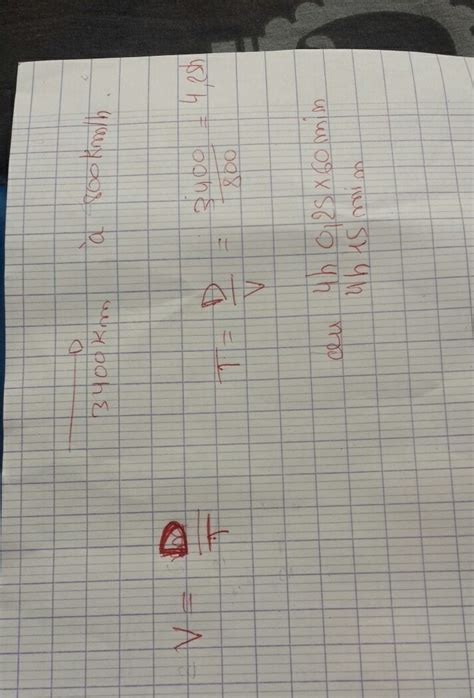 3400km à 800km/h.
V = D/T T = D/V = 3400/800 = 4,25h
4h 0,25 x 60 min
4h 15 min